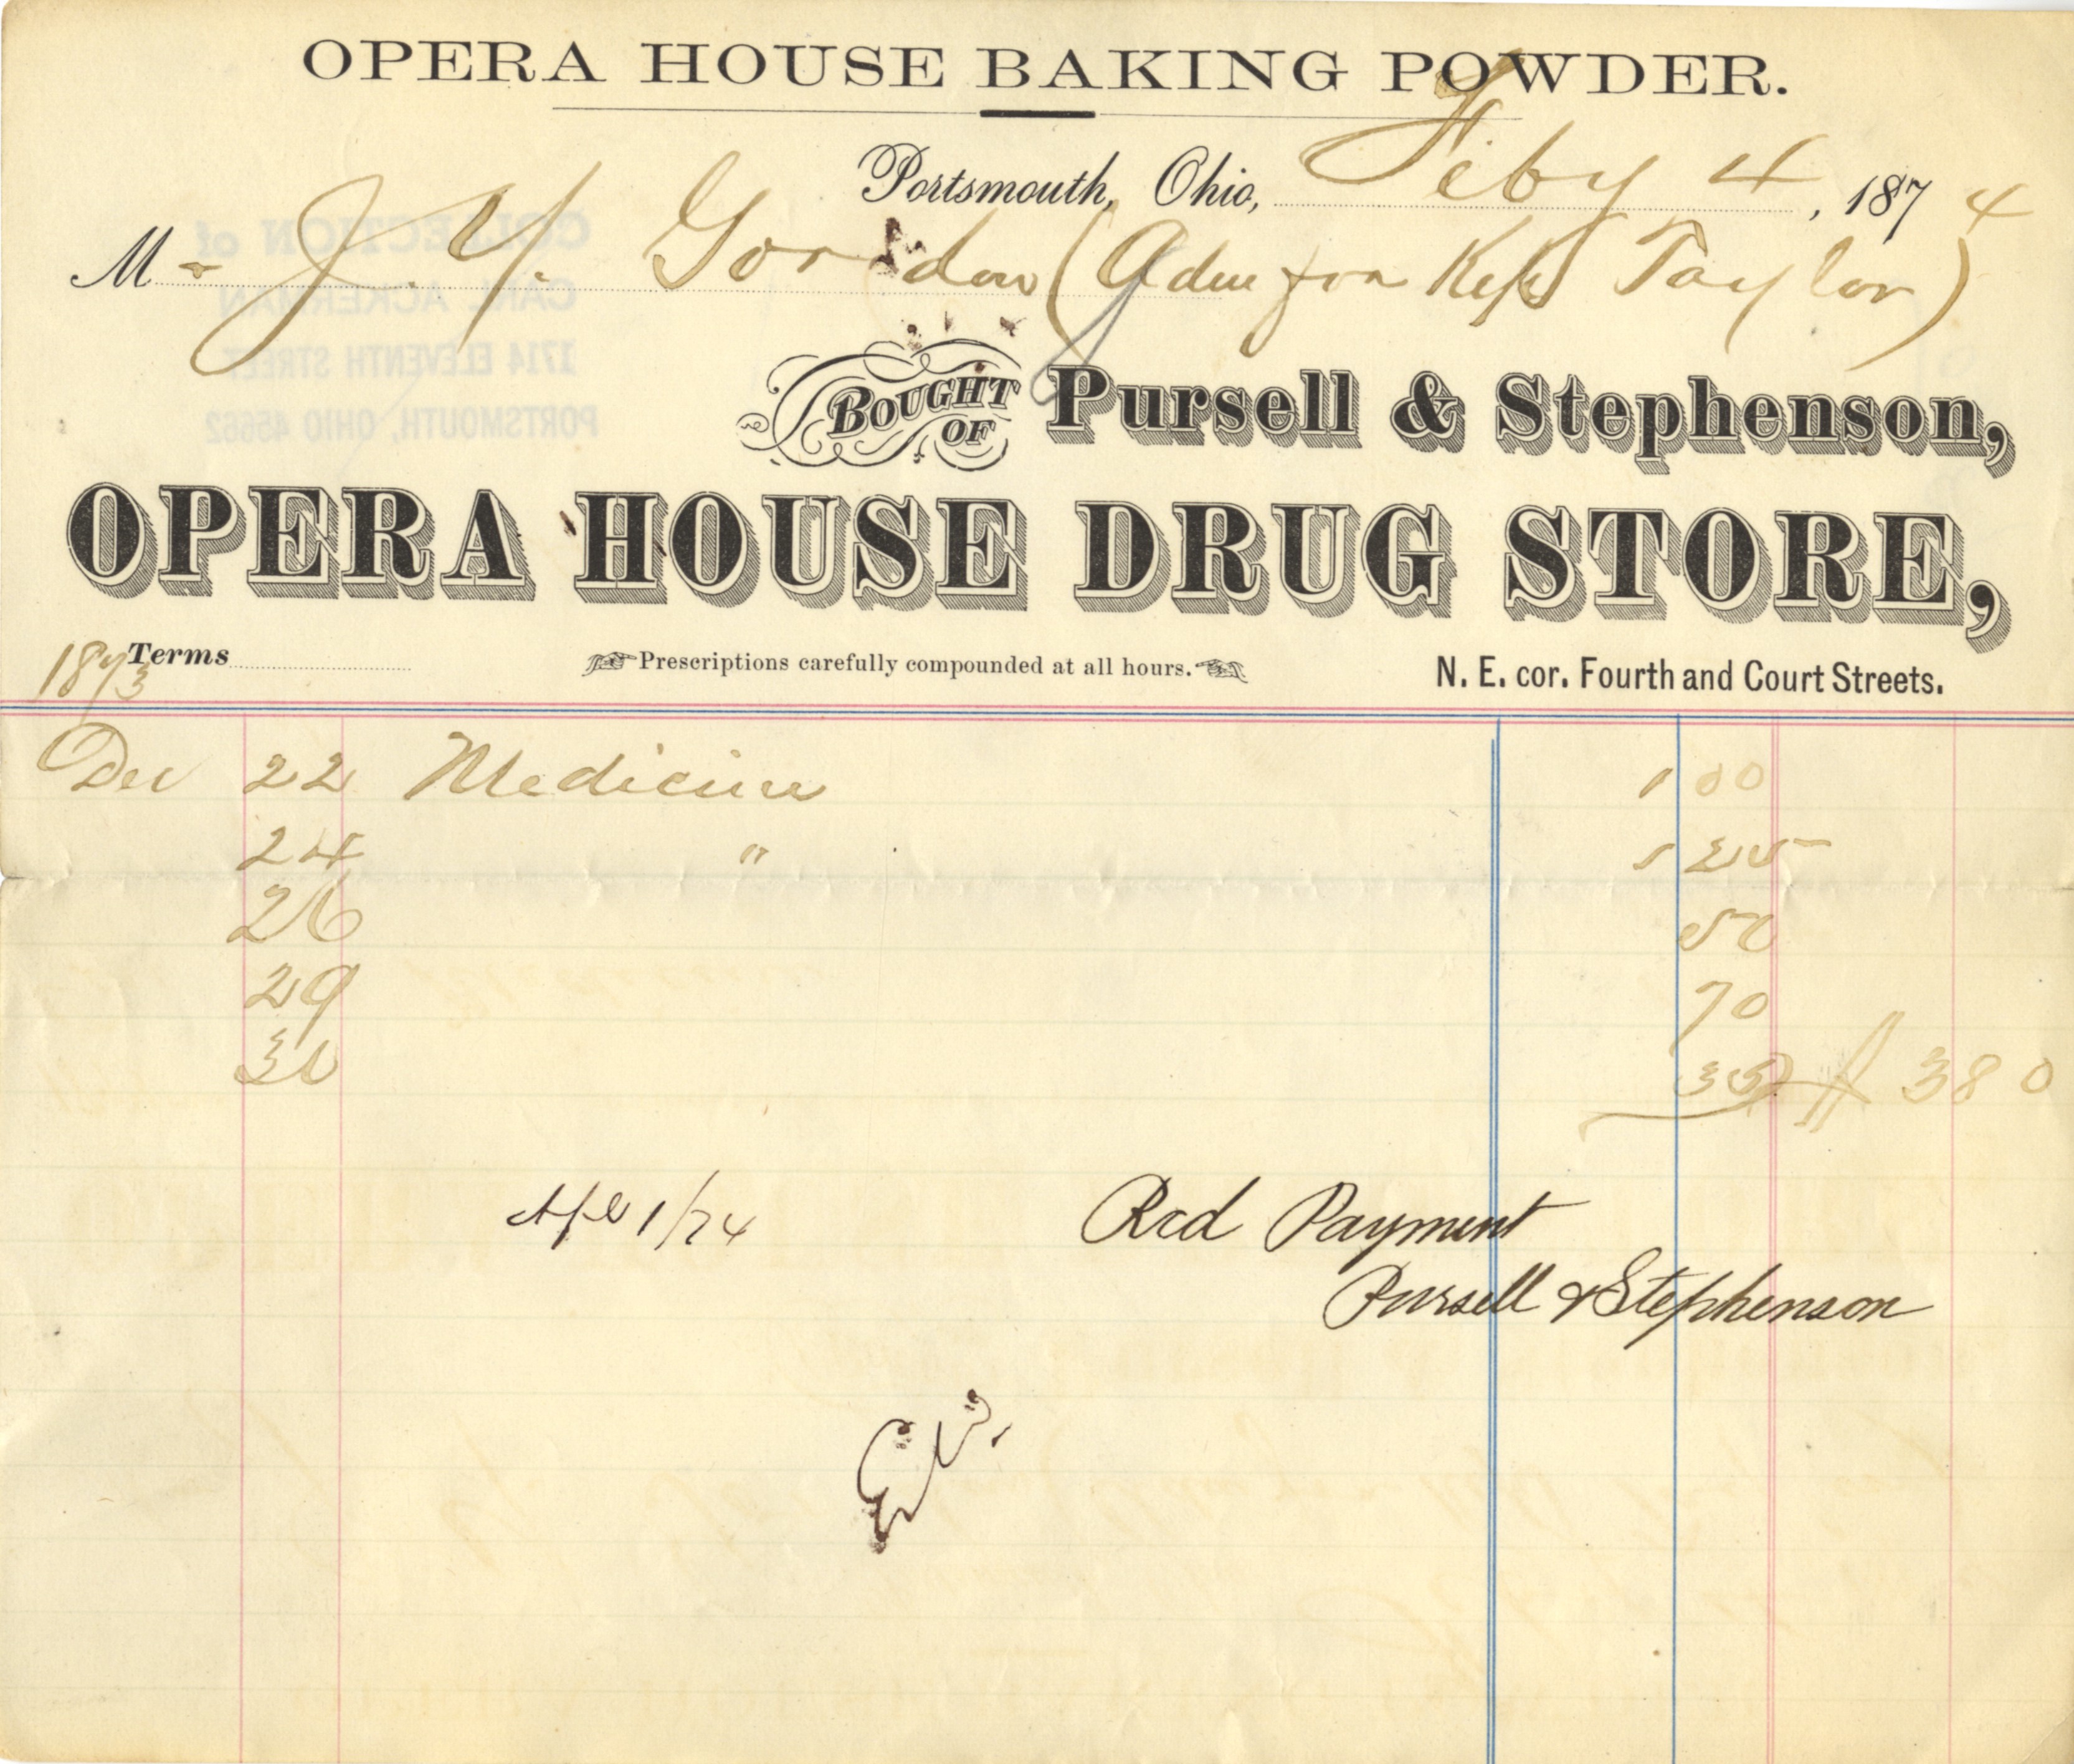 OPERA HOUSE BAKING POWDER.
Portsmouth, Ohio, Feby 4, 1874
Mr J. Y. Gordon (Adm for Taylor)
BOUGHT OF Pursell & Stephenson,
OPERA HOUSE DRUG STORE,
1873 Terms ☞Prescriptions carefully compounded at all hours.☜ N. E. cor. Fourth and Court Streets.
Dec 22 Medicine 1 00
24 " 1 25
26 50
29 70
30 35 $ 3 80
Apl 1/74 Recd Payment
Pursell & Stephenson
COLLECTION of
CARL ACKERMAN
1714 ELEVENTH STREET
PORTSMOUTH, OHIO 45662